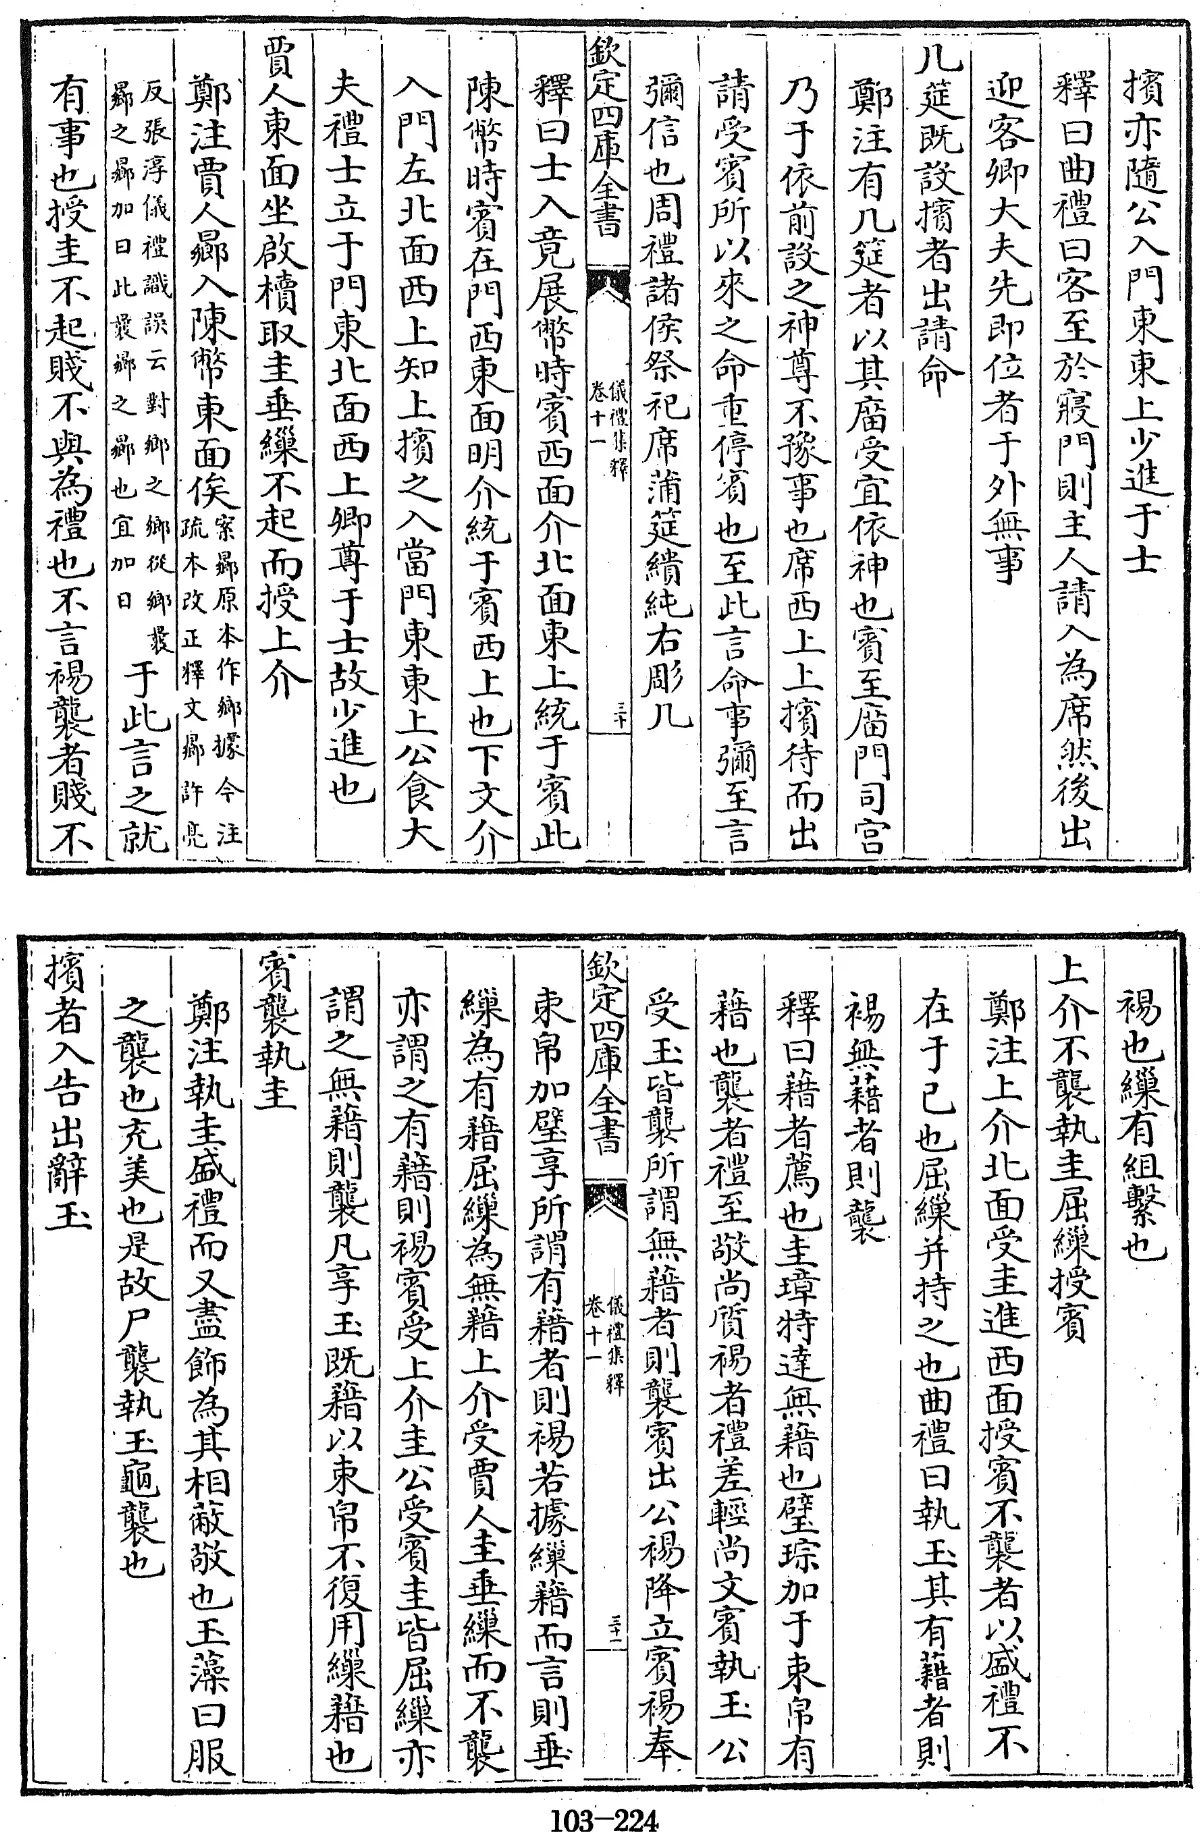 擯亦隨公入門東東上少進于士
釋曰曲禮曰客至於寢門則主人請入為席然後出
迎客卿大夫先即位者于外無事
几筵既設擯者出請命
鄭注有几筵者以其廟受宜依神也賓至廟門司宮
乃于依前設之神尊不豫事也席西上上擯待而出
請受賓所以來之命重停賓也至此言命事彌至言
彌信也周禮諸侯祭祀席蒲筵繢純右彫几
欽定四庫全書 儀禮集釋 卷十一 三十
釋曰士入竟展幣時賓西面介北面東上統于賓此
陳幣時賓在門西東面明介統于賓西上也下文介
入門左北面西上知上擯之入當門東東上公食大
夫禮士立于門東北面西上卿尊于士故少進也
賈人東面坐啟櫝取圭垂繅不起而授上介
鄭注賈人曏入陳幣東面俟案曏原本作鄉據今注
疏本改正釋文曏許亮
反張淳儀禮識誤云對鄉之鄉從鄉曩
曏之曏加日此曩曏之曏也宜加日于此言之就
有事也授圭不起賤不與為禮也不言裼襲者賤不
裼也繅有組繫也
上介不襲執圭屈繅授賓
鄭注上介北面受圭進西面授賓不襲者以盛禮不
在于己也屈繅并持之也曲禮曰執玉其有藉者則
裼無藉者則襲
釋曰藉者薦也圭璋特達無藉也璧琮加于束帛有
藉也襲者禮至敬尚質裼者禮差輕尚文賓執玉公
受玉皆襲所謂無藉者則襲賓出公裼降立賓裼奉
欽定四庫全書 儀禮集釋 卷十一 三十一
束帛加璧享所謂有藉者則裼若據繅藉而言則垂
繅為有藉屈繅為無藉上介受賈人圭垂繅而不襲
亦謂之有藉則裼賓受上介圭公受賓圭皆屈繅亦
謂之無藉則襲凡享玉既藉以束帛不復用繅藉也
賓襲執圭
鄭注執圭盛禮而又盡飾為其相蔽敬也玉藻曰服
之襲也充美也是故尸襲執玉龜襲也
擯者入告出辭玉
103-224